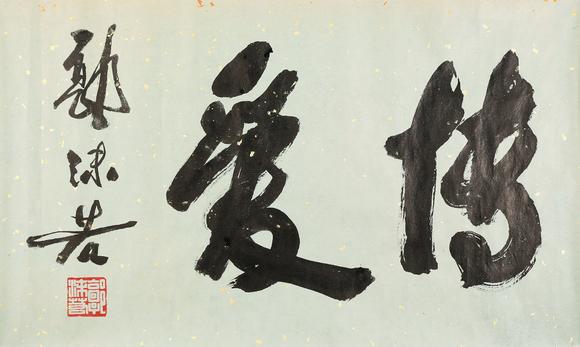 博愛
郭沫若
郭沫若